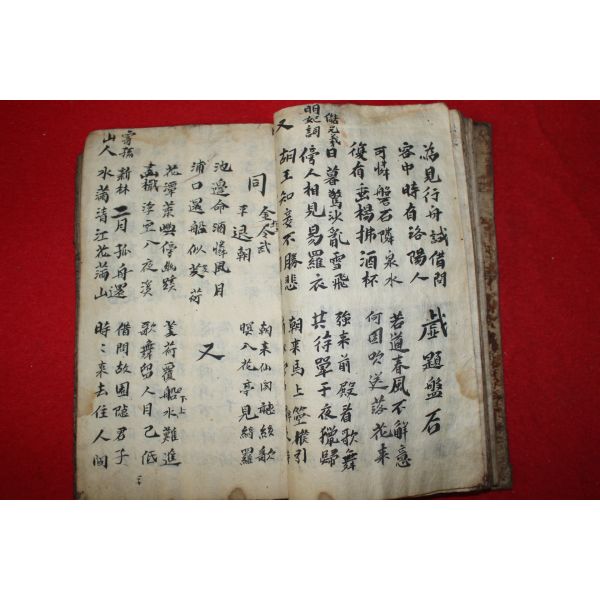 為見行舟試借問
客中時有洛陽人
戱題盤石
可憐磐石隣泉水
復有垂楊拂酒杯
若道春風不解意
何因吹送落花來
明妃詞 儲光羲
日暮驚沙亂雪飛
傍人相見易羅衣
強來前殿看歌舞
共待單于夜獵歸
又
胡王知妾不勝悲
朝來馬上箜篌引
同金
武平
退朝
朝來仙閣聽絃歌
暝入花亭見綺羅
池邊命酒憐風月
浦口還船似芰荷
又
花潭
嶼傍幽蹊
楫浮空入夜溪
芰荷覆船水難進
歌舞留人月已低
寄孫山人
新林二月孤舟還
水滿清江花滿山
借問故園隱君子
時々來去住人間